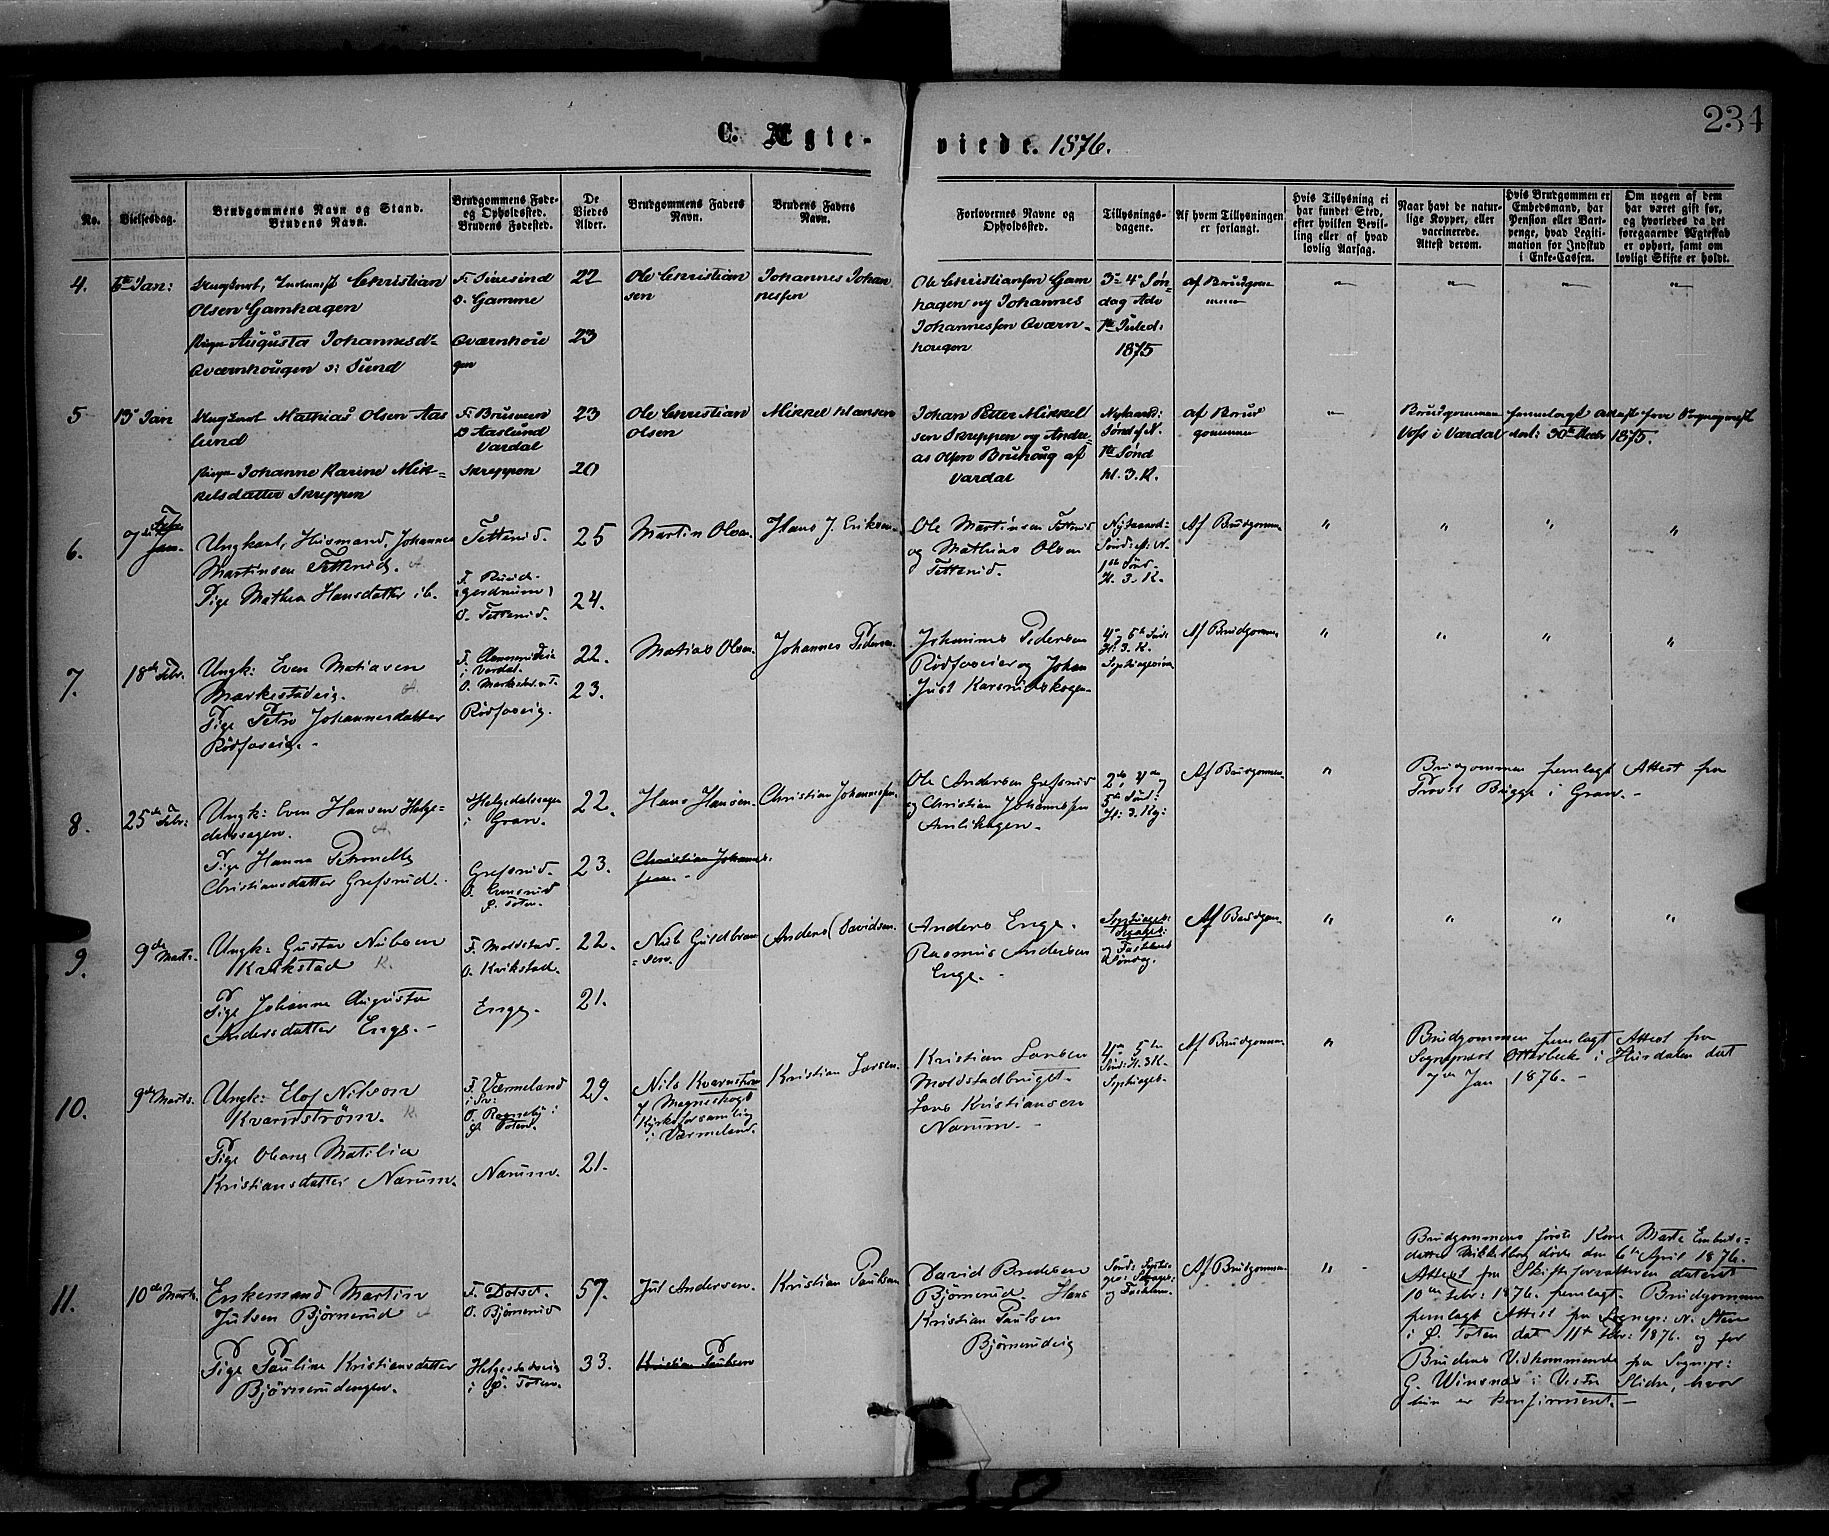 234
C. Ægte-
viede. 1876.
No.
Vielsesdag.
Brudgommens Navn og Stand.
Brudens Navn.
Brudgommens Føde-
og Opholdssted.
Brudens Fødested.
De
Viedes
Alder.
Brudgommens Faders
Navn.
Brudens Faders
Navn.
Forlovernes Navne og
Opholdssted.
Tillysnings-
dagene.
Af hvem Tillysningen
er forlangt.
Hvis Tillysning ei
har fundet Sted,
efter hvilken Bevil-
ling eller af hvad
lovlig Aarsag.
Naar havt de natur-
lige Kopper, eller
vaccinerede.
Attest derom.
Hvis Brudgommen er
Embedsmand, har
Pension eller Vart-
penge, hvad Legiti-
mation for Indskud
i Enke-Cassen.
Om nogen af dem
har været gift før,
og hvorledes da det
foregaaende Ægteskab
er ophørt, samt om
lovligt Skifte er holdt.
4.
Jan:
Christian
Olsen Gamhagen
Pige Augusta Johannesd-
Qværnhougen v: Sund
o. Gamme
Qværnhou
gen
22
23
Ole Christian
sen
Johannes Johan
nessen
Ole Christiansen Gam
hagen og Johannes
Johannessen Qværn-
hougen
3- 4- Søn-
dag Adv
1875
af Brudgom
men
5
13 Jan
Mathias Olsen Aas
lund
Pige Johanne Karine Mik-
kelsdatter Skreppen
O Aaslund
Vardal
Skreppen
23
20
Ole Christian
Olsen
Mikkel Hansen
Johan Petter Mikkel
sen Skreppen og Andre-
as Olsen Bruhoug af
Vardal
Nytaarsd:
Sønd ef. N.
1ste Sønd
H. 3. K.
af Brud
gommen
Brudgommen fremlagt Attest fra Sogneprest
Voss i Vardal dat: 30te Decbr 1875.
6.
7de Febr
Jan.
Ungkarl, Husmand, Johannes
Martinsen Tetterud.
Pige Mathea Hansdatter ib.
Tetterud.
O. Tetterud.
25
24.
Martin Olsen
Hans J. Eriksen
Ole Martinsen Tetterud
og Mathias Olsen
Tetterud.
Nytaarsd-
Sønd: ef: N.
1ste Sønd
H. 3. K.
Af Brudgommen
7.
18de Febr.
Ungk: Even Matiasen
Markestadeig.
Pige Petra Johannesdatter
Rødfoseig.
i Vardal.
Rødfoseig.
22.
23.
Matias Olsen
Johannes Pedersen
Johannes Pedersen
Rødfoseier og Johan
Just Karsrudskogen
4de 5te Sønd:
H. 3. K.
Septuagesima
Af Brudgommen
8.
25de Febr:
Ungk: Even Hansen Helge-
dalssagen.
Pige Hanna Petronella
Christiansdatter Grefsrud.
Helgedalssagen
i Gran.
Grefsrud.
Ø. Toten.
22.
23.
Hans Hansen
Christian Johannes-
sen.
Christian Johannessen
Ole Andersen Grefsrud
og Christian Johannessen
2de, 4de og
5te Sønd:
H: 3. Kg:
Af Brudgommen
Brudgommen fremlagt Attest fra
Provst Bugge i Gran.
9.
9de Marts.
Ungk: Gustav Nilsen
Krikstad K.
Pige Johanne Augusta
Andersdatter Enge.
F. Moldstad
O. Krikstad.
Enge.
22.
21.
Nils Guldbran
sen.
Anders Davidsen
Anders Enge.
Rasmus Andersen
Enge.
og Fastelavns
Søndag.
Af Brudgom.
10.
9de Marts.
Ungk: Elof Nilsson
Kvarnstrøm. K.
Pige Oleane Matilia
Kristiansdatter Narum.
F. Værmeland
i Sv:
Ø. Toten.
Narum.
29.
21.
Nils Kvarnstrøm
i Værmeland.
Kristian Larsen
Kristian Larsen
Moldstadbruget.
Lars Kristiansen
Narum.
4de 5te
Sønd: H. 3 K.
Septuages.
Af Brudgommen
Brudgommen fremlagt Attest fra
Sogneprest Otterbech i Hurdalen dat
Jan 1876.
11.
10de Marts
Enkemand Martin
Julsen Bjørnerud
Pige Pauline Kristiansdatter
Bjørnerudengen.
O. Bjørnerud
i Ø. Toten.
57.
33.
Jul Andersen.
Kristian Paulsen
Kristian Paulsen
David Bredesen
Bjørnerud. Hans
Kristian Paulsen
Bjørnerudeig
Af Brudgommen
Brudgommens første Kone Marte Embrets-
datter døde den 6te April 1876.
Attest fra Skifteforvalteren dateret
10de Febr: 1876. fremlagt. Brudgommen
fremlagt Attest fra Sognep: N. Steen
i Ø. Toten dat 11te Febr: 1876. og for
Brudens Vedkommende fra Sognepr:
G. Winsnes i Vestre Slidre, hvor
hun er konfirmeret.